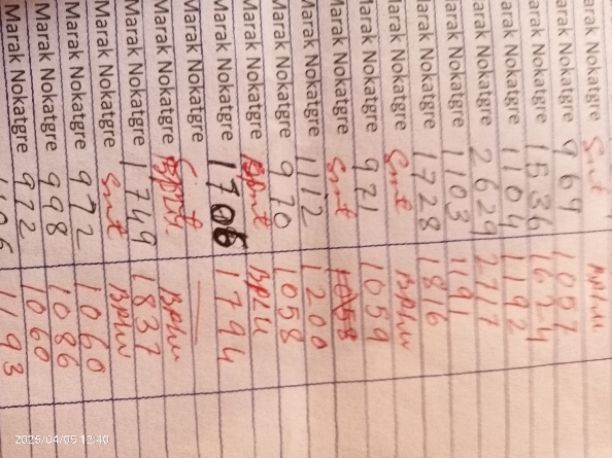 arak Nokatgre Smt
Marak Nokatgre 969 1057
Marak Nokatgre 1536 1624
Marak Nokatgre 1104 1192
Marak Nokatgre 2629 2717
Marak Nokatgre 1103 1191
Marak Nokatgre 1728 1816
arak Nokatgre Smt BPLW
Marak Nokatgre 971 1059
Marak Nokatgre Smt 1058
Marak Nokatgre 1112 1200
Marak Nokatgre 970 1058
Marak Nokatgre BPLU
Marak Nokatgre 1706 1794
Marak Nokatgre Smt
Marak Nokatgre BPLW
Marak Nokatgre 1749 1837
Marak Nokatgre Smt BPLW
Marak Nokatgre 972 1060
Marak Nokatgre 998 1086
Marak Nokatgre 972 1060
1193
2025/04/05 12:40